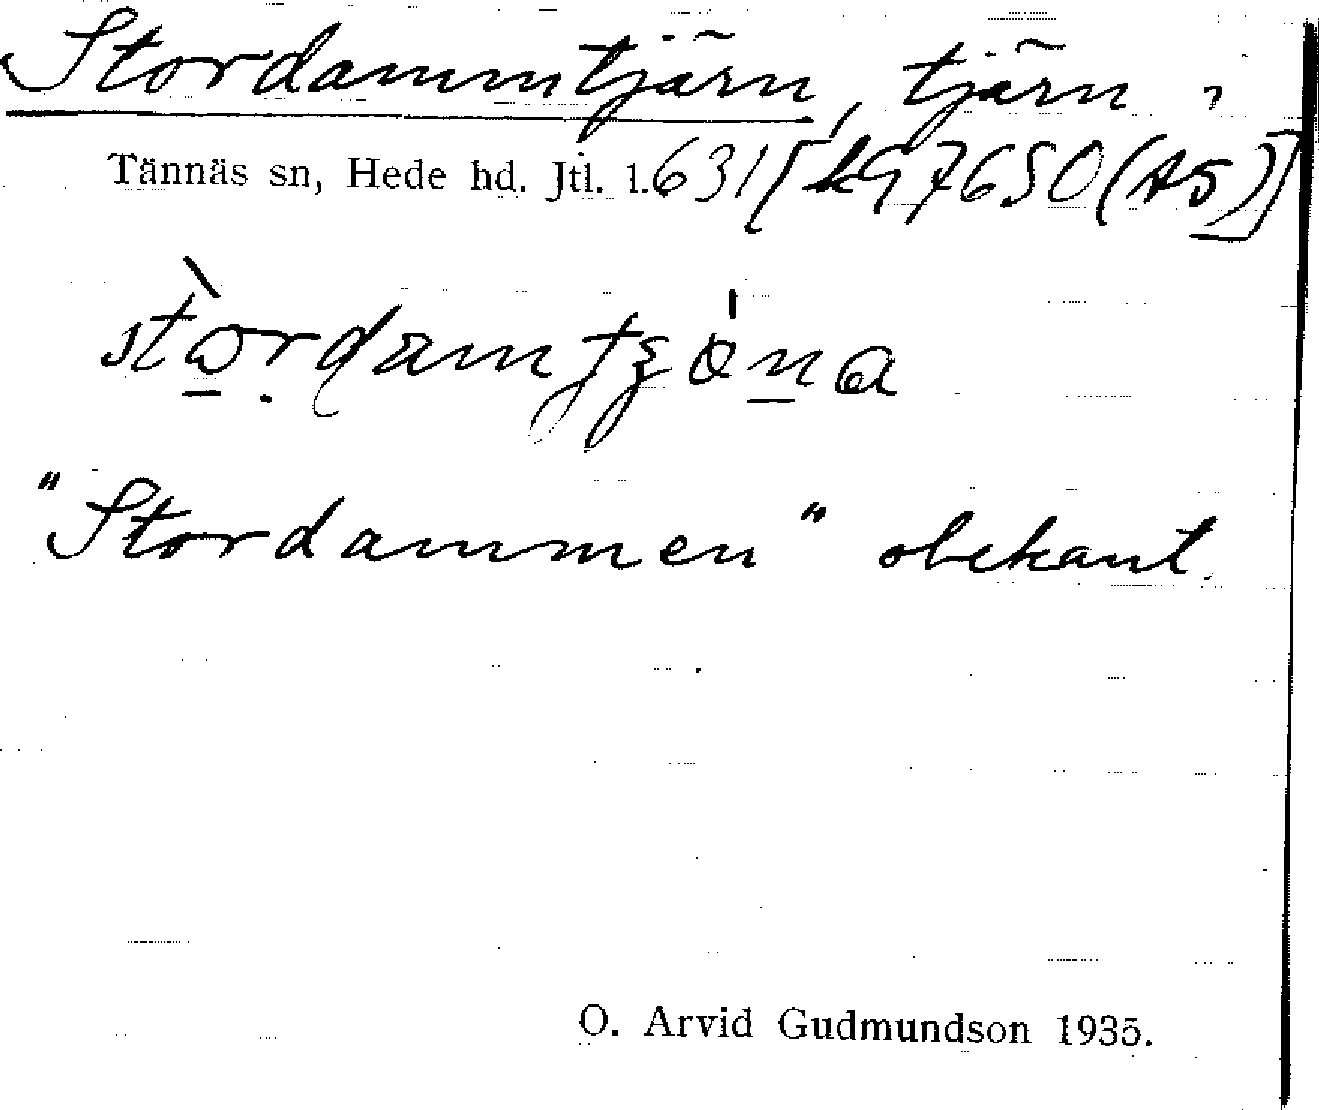 Stordammtjärn, tjärn i
Tännäs sn, Hede hd. Jtl. l. 631 [k97650 (A5)]
"Stordammen" obekant.
O. Arvid Gudmundson 1935.